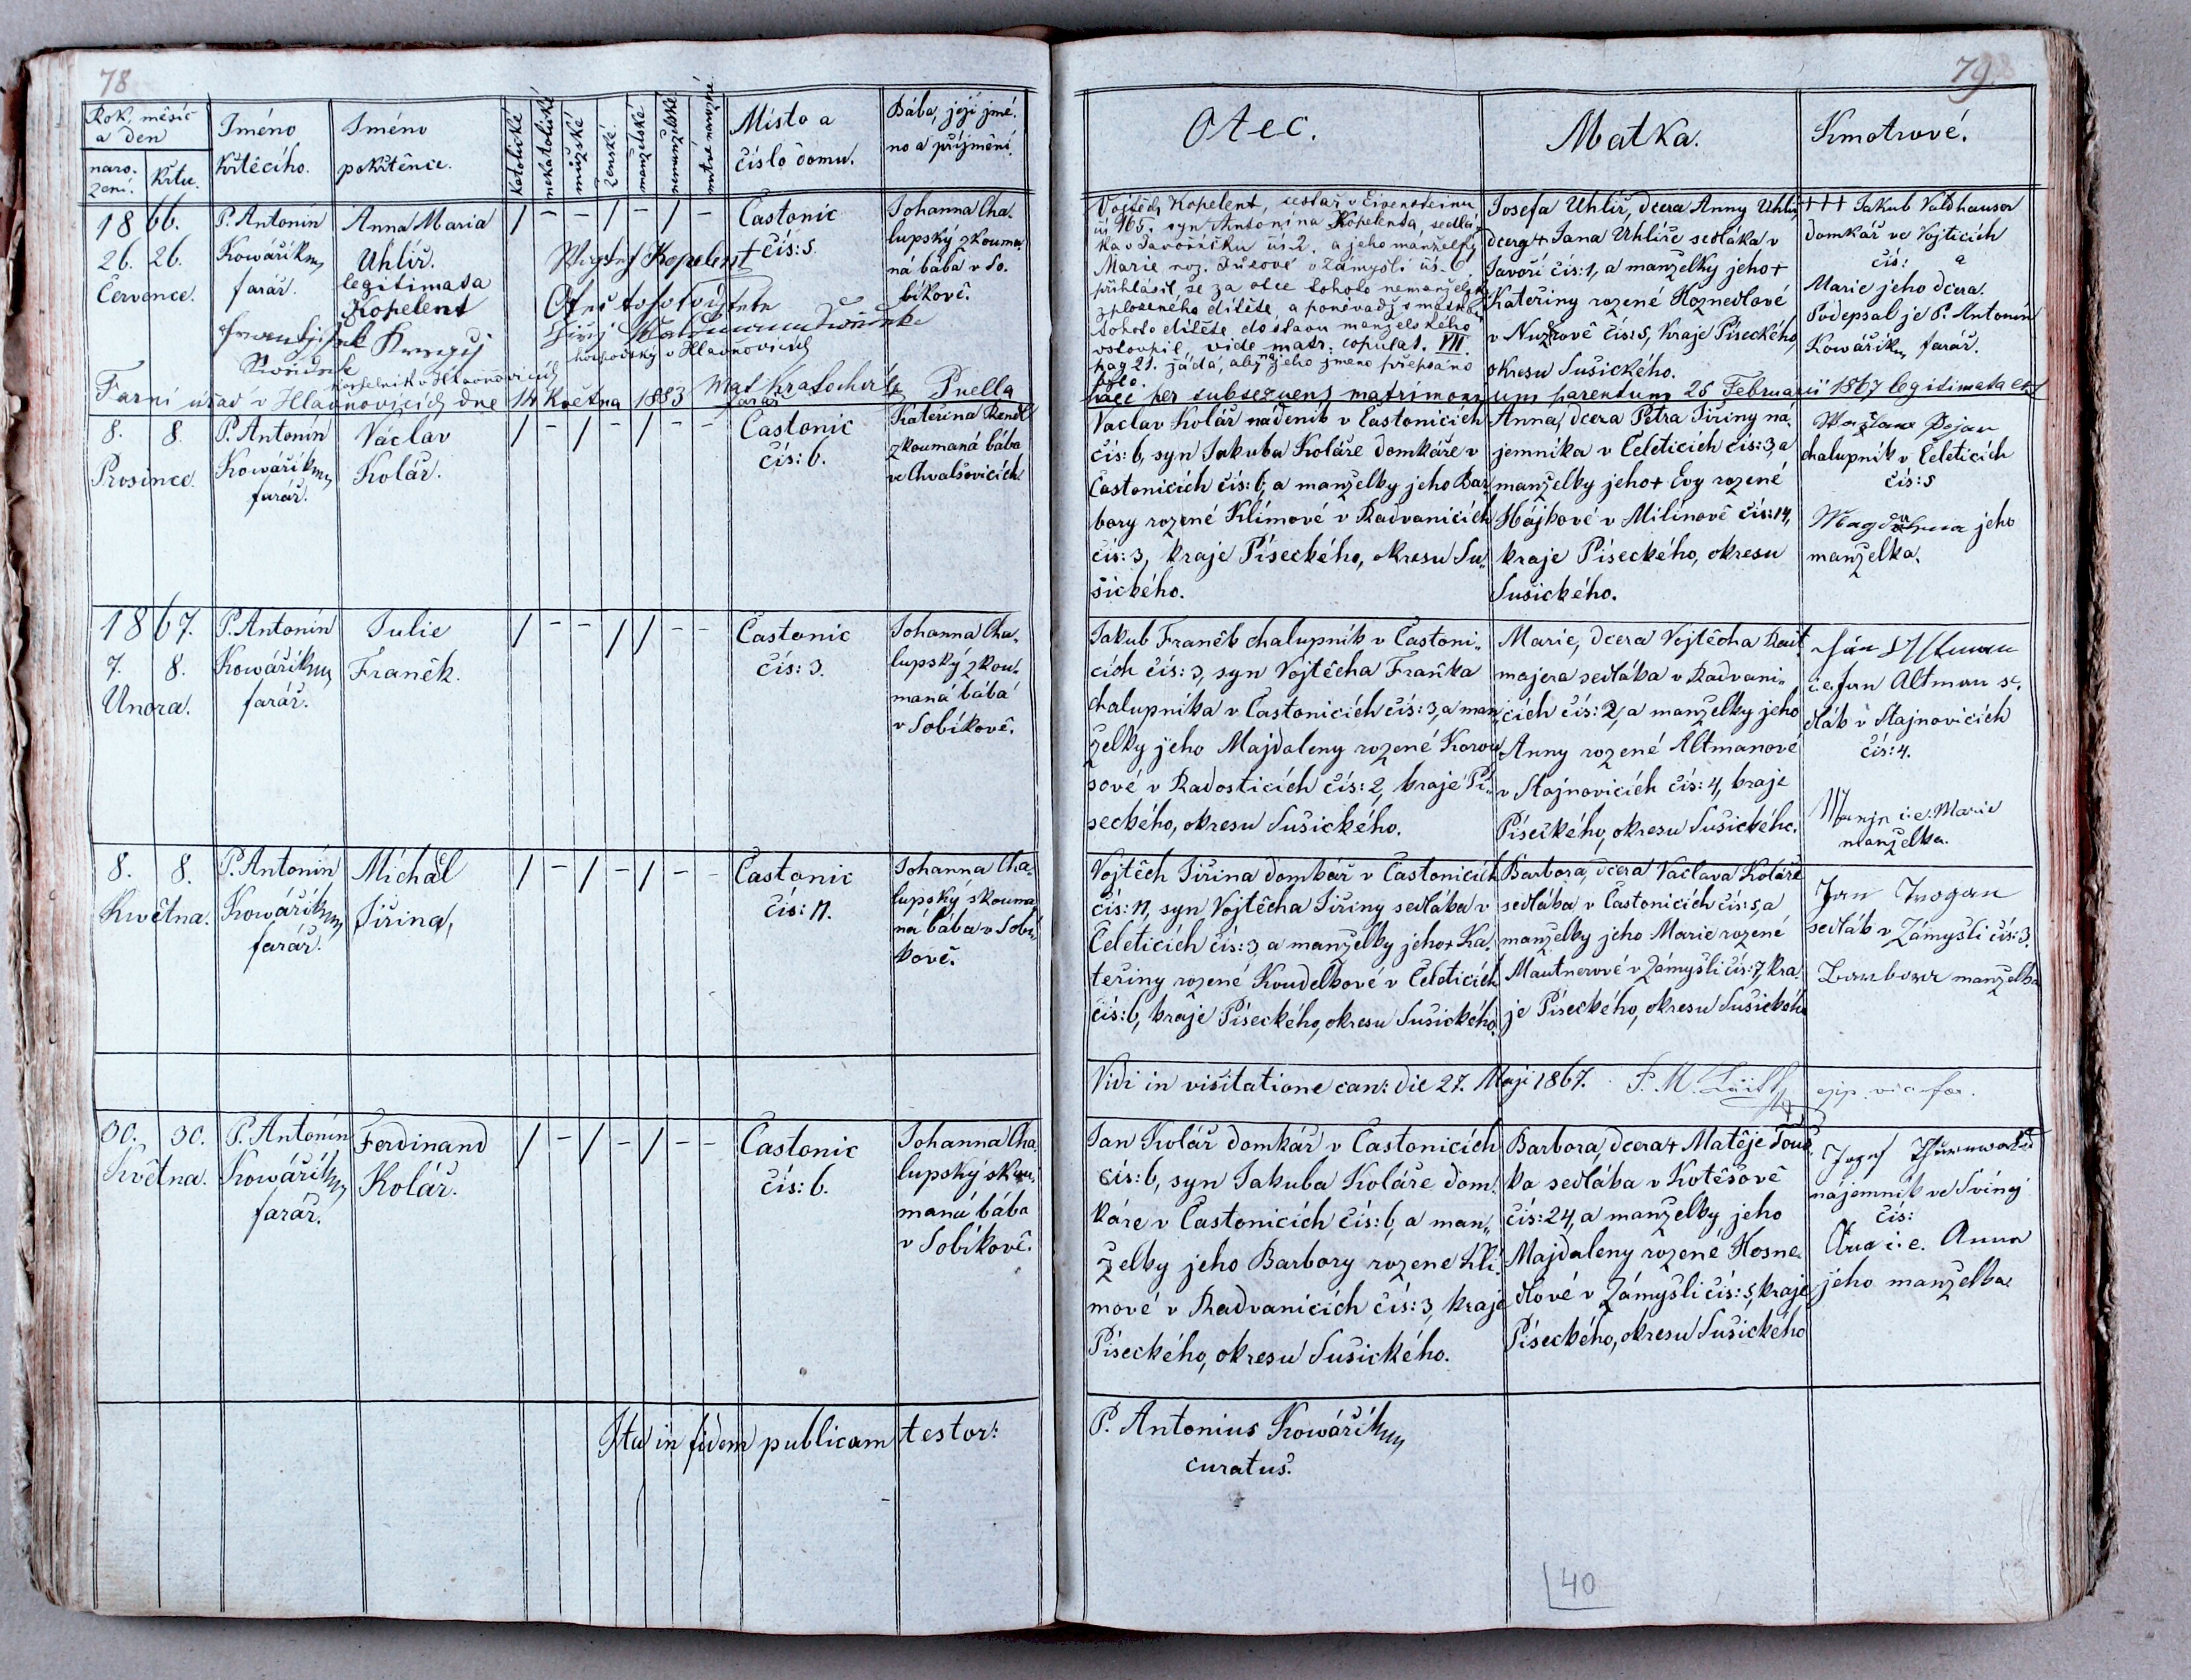 78
Rok, měsíc
a den
naro-
zení.
Křtu.
Jméno
křtěcího.
Jméno
pokřtěnce.
katolické
nekatolické
mužské
ženské.
manželské
nemanželské
mrtvě narozené
Místo a
číslo domu.
Bába, její jmé-
no a příjmění.
1866.
26. 26.
Července.
P. Antonín
Kowářík
farář.
Anna Maria
Uhlíř.
legitimata
Kopelent
/ - - / - / -
Častonic
čís: 5.
Johanna Cha-
lupský zkouma-
ná bába v So-
bíkově.
Kopelent
Otec tohoto dítěte
v Hlavňovicích
Farní úřad v Hlavňovicích dne 14 Května 1883
farář
Puella
8. 8.
Prosince.
P. Antonín
Kowářík
farář.
Václav
Kolář.
/ - / - / - -
Častonic
čís: 6.
Kateřina Rendl
zkoumaná bába
ve Chvalšovicích.
1867.
7. 8.
Unora.
P. Antonín
Kowářík
farář.
Julie
Franěk.
/ - - / / - -
Častonic
čís: 3.
Johanna Cha-
lupský zkou-
maná bába
v Sobíkově.
8. 8.
Května.
P. Antonín
Kowářík
farář.
Michael
Jiřina,
/ - / - / - -
Častonic
čís: 11.
Johanna Cha-
lupský skouma-
ná bába v Sobí-
kově.
30. 30.
Května.
P. Antonín
Kowářík
farář.
Ferdinand
Kolář.
/ - / - / - -
Častonic
čís: 6.
Johanna Cha-
lupský skou-
maná bába
v Sobíkově.
Ita in fidem publicam testor:
79.
Otec.
Matka.
Kmotrové.
Vojtěch Kopelent, cestář v Eisensteinu
čís 165. syn Antonína Kopelenta, sedlá-
ka v Javoříčku čís. 2. a jeho manželky
Marie roz. v Zámyšli čís. 6.
přihlásil se za otce tohoto nemanželsky
zplozeného dítěte, a poněvadž s matkou
tohoto dítěte do stavu manželského
vstoupil vide matr. copulat. VII.
pag 21. žádá, aby na jeho jmeno přepsáno
bylo.
haec per subsequens matrimonium parentum 26 Februarii 1867 legitimata est
Josefa Uhlíř, dcera Anny Uhlíř
dcery + Jana Uhlíře sedláka v
Javoří čís: 1, a manželky jeho +
Kateřiny rozené Hoznedlové
v Nuzrově čís: 5, kraje Píseckého,
okresu Sušického.
+++ Jakub Valdhauser
domkář ve Vojticích
čís: a
Marie jeho dcera.
Podepsal je P. Antonín
Kowářík, farář.
Václav Kolář nádeník v Častonicích
čís: 6, syn Jakuba Koláře domkáře v
Častonicích čís: 6, a manželky jeho Bar-
bory rozené Klímové v Radvanicích
čís: 3, kraje Píseckého, okresu Su-
šického.
Anna, dcera Petra Jiřiny ná-
jemníka v Čeleticích čís: 3, a
manželky jeho + Evy rozené
Hájkové v Milínově čís: 14,
kraje Píseckého, okresu
Sušického.
chalupník v Čeleticích
čís: 5
Magdalena jeho
manželka.
Jakub Franěk chalupník v Častoni-
cích čís: 3, syn Vojtěcha Fraňka
chalupníka v Častonicích čís: 3, a man-
želky jeho Majdaleny rozené Korou-
sové v Radosticích čís: 2, kraje Pí-
seckého, okresu Sušického.
Marie, dcera Vojtěcha Raut-
majera sedláka v Radvani-
cích čís: 2, a manželky jeho
Anny rozené Altmanové
v Stajnovicích čís: 4, kraje
Píseckého, okresu Sušického.
i. e. Jan Altman se-
dlák v Stajnovicích
čís: 4.
i. e. Marie
manželka.
Vojtěch Jiřina domkář v Častonicích
čís: 11, syn Vojtěcha Jiřiny sedláka v
Čeleticích čís: 3, a manželky jeho + Ka-
teřiny rozené Koudelkové v Čeleticích
čís: 6, kraje Píseckého, okresu Sušického.
Barbora, dcera Václava Koláře
sedláka v Častonicích čís: 5, a
manželky jeho Marie rozené
Mautnerové v Zámyšli čís: 7, kra-
je Píseckého, okresu Sušického
Jan
sedlák v Zámyšli čís: 3.
Barbora manželka
Vidi in visitatione can: die 27. Maji 1867.
Jan Kolář domkář v Častonicích
čís: 6, syn Jakuba Koláře dom-
káře v Častonicích čís: 6, a man-
želky jeho Barbory rozené Klí-
mové v Radvanicích čís: 3, kraje
Píseckého, okresu Sušického.
Barbora, dcera + Matěje Touš-
ka sedláka v Kotěšově
čís: 24, a manželky jeho
Majdaleny rozené Hosne-
dlové v Zámyšli čís: 5, kraje
Píseckého, okresu Sušického
Josef
nájemník ve Sviný
čís:
i. e. Anna
jeho manželka
P. Antonius Kowářík
curatus.
40